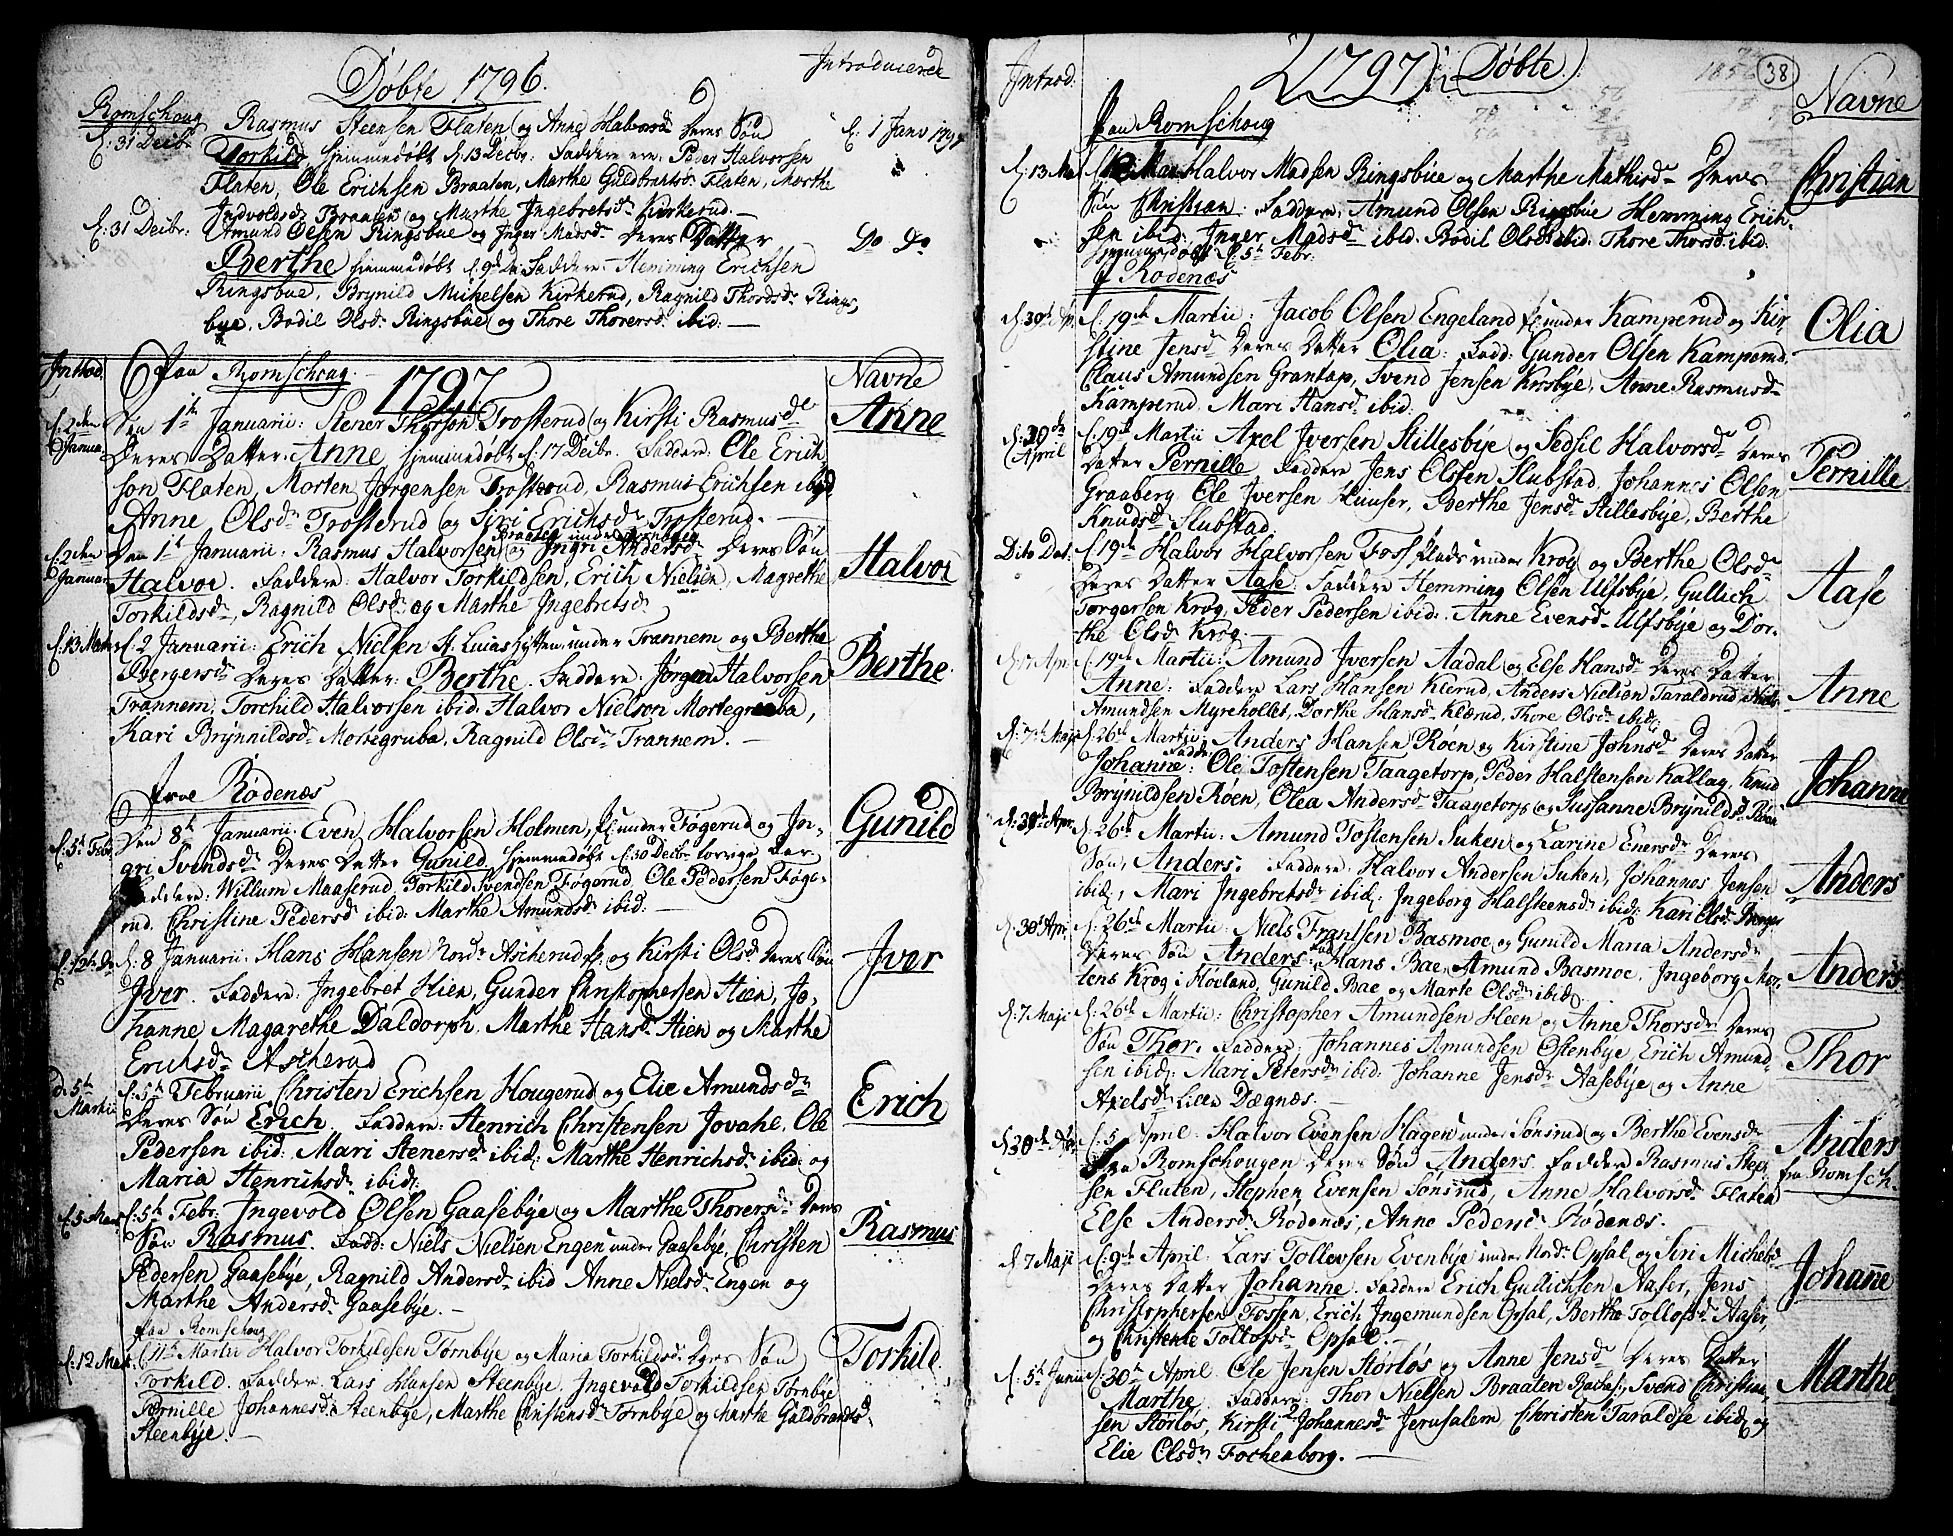 Døbte 1796.
Introducerede
Romschoug
d: 31 Decbr: Rasmus Steensen Flaten og Anne Halvorsd. Deres Søn d. 1 Janv 1797
Torkild, hjemmedøbt d. 13 Decbr: Faddere ere: Peder Halvorsen
Flaten, Ole Erichsen Braaten, Marthe Guldbrantsd. Flaten, Marthe
Indvoldsd. Braaten og Marthe Ingebretsd. Kirkerud.
d: 31 Decbr: Amund Olsen Ringsbue og Inger Madsd. Deres Datter Do Do
Berthe hjemmedøbt d. 9d Do: Faddere: Hemming Erichsen
Ringsbue, Brynild Mickelsen Kirkerud, Ragnild Thordsd. Rings
bue, Bodil Olsd. Ringsbue og Thore Thorersd. ibid:
Introd: Paa Romschoug. 1797. Navne
d. 2den Januar Den 1te Januarii: Stener Thorson Trosterud og Kirsti Rasmusd. Anne
Deres Datter: Anne hjemmedøbt d. 17 Decbr. Faddere: Ole Erich
son Flaten, Morten Jørgensen Trosterud, Rasmus Erichsen ibid
Anne Olsd. Trosterud og Siri Erichsd. Trosterud.
Braaten under
d. 2den Januar Den 1te Januarii: Rasmus Halvorsen og Ingri Andersd. Deres Søn Halvor
Halvor. Faddere: Halvor Torkildsen, Erich Nielsen, Magrethe
Torkildsd., Ragnild Olsd. og Marthe Ingebretsd.
d. 13 Mar d. 2 Januarii: Erich Nielsen St. Lucas hytten under Trannem og Berthe Berthe
Bergersd. Deres Datter: Berthe. Faddere: Jørgen Halvorsen
Trannem, Torchild Halvorsen ibid. Halvor Nielson Mortegruba,
Kari Brynnildsd. Mortegruba, Ragnild Olsd. Trannem.
Rødenæs
d. 5t Febr Den 8te Januarii: Even Halvorsen Holmen, Pl. under Føgerud og In- Gunild
gri Svendsd. Deres Datter Gunild. hjemmedøbt d. 30 Decbr forrige
Faddere: Willum Maaserud, Torkild Svendsen Føgerud, Ole Pedersen Føge-
rud, Christine Pedersd. ibid: Marthe Amundsd. ibid:
d. 12te Do d: 8 Januarii: Hans Hansen Nord. Ascherud og Kirsti Olsd. Deres Søn Jver
Jver. Faddere: Ingebret Hien, Gunder Christophersen Hien, Jo-
hanne Magarethe Daldorph, Marthe Hansd. Hien og Marthe
Erichsd. Ascherud
d. 5te Martii d. 5te Februarii Christen Erichsen Hougerud og Elie Amundsd. Erich
Deres Søn Erich. Faddere: Henrich Christensen Jovahl, Ole
Pedersen ibid: Mari Stenersd. ibid: Marthe Henrichsd. ibid: og
Maria Henrichsd. ibid:
d. 5 Mar d. 5te Febr: Ingevold Olsen Gaasebye og Marthe Thorersd. Deres Rasmus
Søn Rasmus. Fadd: Niels Nielsen Engen under Gaasebye, Christen
Pedersen Gaasebye, Ragnild Andersd. ibid Anne Nielsd. Engen og
Marthe Andersd. Gaasebye.
Paa Romschoug
d. 12 Mar. Martii Halvor Torkildsen Tørnbye og Maria Torkildsd. Deres Søn Torkild
Torkild. Faddere Lars Hansen Steenbye, Ingevold Torkildsen Tørnbye
Pernille Johannesd. Steenbye, Marthe Christensd. Tørnbye og Marthe Guldbrandsd.
Steenbye.
Introd: 1797 Døbte. 38
Navne
Paa Romschoug
d. 13 Mar Halvor Madsen Ringsbue og Marthe Mathisd. Deres Christian
Søn Christian. Faddere: Amund Olsen Ringsbue Hemming Erich-
sen ibid: Inger Madsd. ibid. Bodil Olsd. ibid: Thore Thorsd. ibid.
hjemmedøbt d. 5te Febr:
Rødenæs
d. 19de Martii: Jacob Olsen Engeland Pl. under Kamperud og Kir- Olia
stine Jensd. Deres Datter Olia: Fadd: Gunder Olsen Kamperud
Claus Amundsen Grantap, Svend Jensen Krosbye, Anne Rasmusd.
Kamperud, Mari Hansd. ibid:
d: 30de April d: 19de Martii Axel Jversen Stillesbye og Sedsil Halvorsd. Deres Pernille
Datter Pernille Faddere Jens Olssen Slubstad, Johannes Olsen
Graaberg, Ole Jversen Huuser, Berthe Jensd. Stillesbye, Berthe
Knudsd. Slubstad.
Dito Dat. d: 19de Halvor Halvorsen Foss Plads under Krog og Berthe Olsd. Aase
Deres Datter Aase: Faddere Hemming Olsen Ulfsbye, Gullich
Torgersen Krog, Peder Pedersen ibid: Anne Evensd. Ulfsbye og Dor-
the Olsd. Krog.
d. 19de Martii: Amund Jversen Aadal og Else Hansd. Deres Datter Anne
Anne: Faddere Lars Hansen Klerud, Anders Nielsen Taraldrud, Niels
Amundsen Myreholtet, Dorthe Hansd. Klærud, Thore Olsd. ibid:
d: 7de Maji d: 26de Martii: Anders Hansen Roen og Kirstine Johnsd. Deres Datter Johanne
Johanne: Fadde: Ole Tostensen Taagetorp, Peder Halstensen Kallag, Knud
Brynildsen Roen, Olea Andersd. Taagetorp og Susanne Brynildsd. Roen
d: 30te Apr. d: 26de Martii: Amund Tostensen Suken og Larine Enersd. Deres Anders
Søn, Anders. Faddere: Halvor Andersen Suken, Johannes Jensen
ibid, Mari Ingebretsd. ibid: Ingeborg Halsteensd. ibid: Kari Olsd.
d: 30 Apr d: 26de Martii: Niels Frantsen Basmoe og Gunild Maria Andersd. Anders
Deres Søn Anders: Hans Bae, Amund Basmoe, Ingeborg Mor-
tens Krog i Høeland, Gunild Bae og Marte Olsd. ibid.
d: 7 Maji d: 26de Martii: Christopher Amundsen Heen og Anne Thorsd. Deres Thor
Søn Thor. Faddere: Johannes Amundsen Ostenbye, Erich Amund-
sen ibid: Mari Petersd. ibid: Johanne Jensd. Aasebye og Anne
Axelsd. Lien Dægnæs.
d: 5 April: Halvor Evensen Hagen under Sønsrud og Berthe Evensd. Anders
fra Romschougen Deres Søn Anders Faddere Rasmus Step fra Romsch.
sen Flaten, Stephen Evensen Sønsrud, Anne Halvorsd. Flaten
Else Andersd. Rødenæs, Anne Pedersd. Rødenæs.
d. 7 Maji d: 9de April: Lars Tollevsen Evenbye under Nord. Opsal og Siri Michelsd. Johanne
Deres Datter Johanne. Faddere Erich Gullichsen Aaser, Jens
Christophersen Fossen, Erich Ingemundsen Opsal, Berthe Tollofsd. Aaser,
og Christense Tollofsd. Opsal.
d. 5te Junii d. 30te April Ole Jensen Størløs og Anne Jensd. Deres Datter Marthe
Marthe Faddere: Thor Nielsen Braaten Svend Christian-
sen Størløs, Kirsti Johannesd. Jerusalem Christen Taraldse ibid, og
Elie Olsd. Fochenborg.